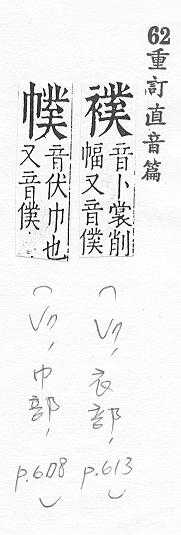 62重訂直音篇
襆
音卜裳削
幅又音僕
(V7, 衣部, p.613)
幞
音伏巾也
又音僕
(V7, 巾部, p.608)